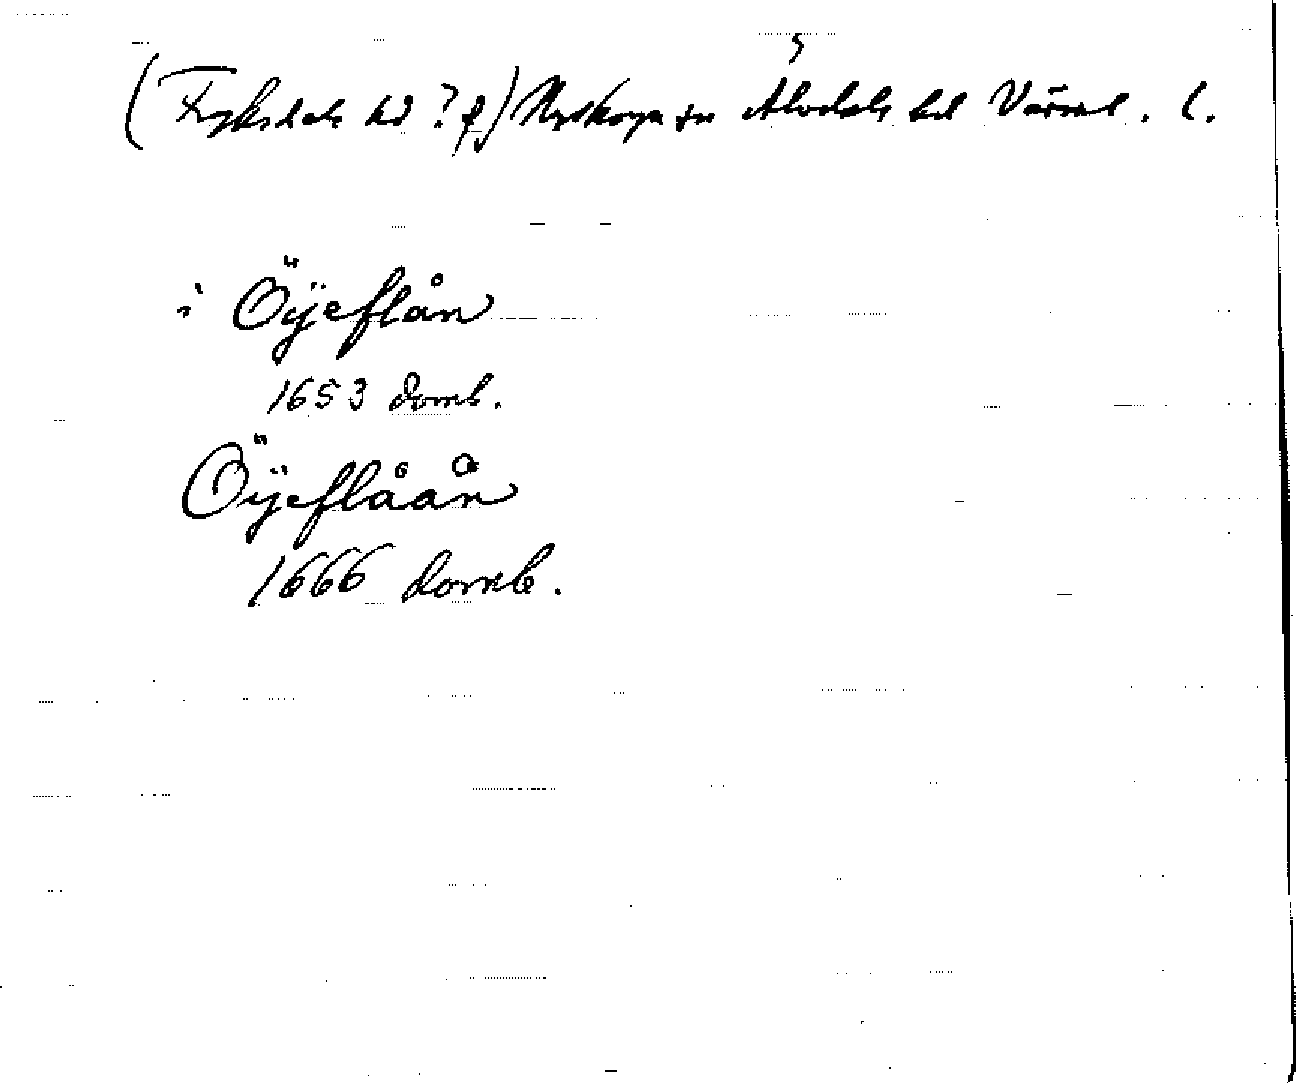 (Fryksdals hd ? f) Nyskoga sn Älvdals hd Värml. l.
i Öÿeflån
1653 domb.
Öÿeflåån
1666 domb.